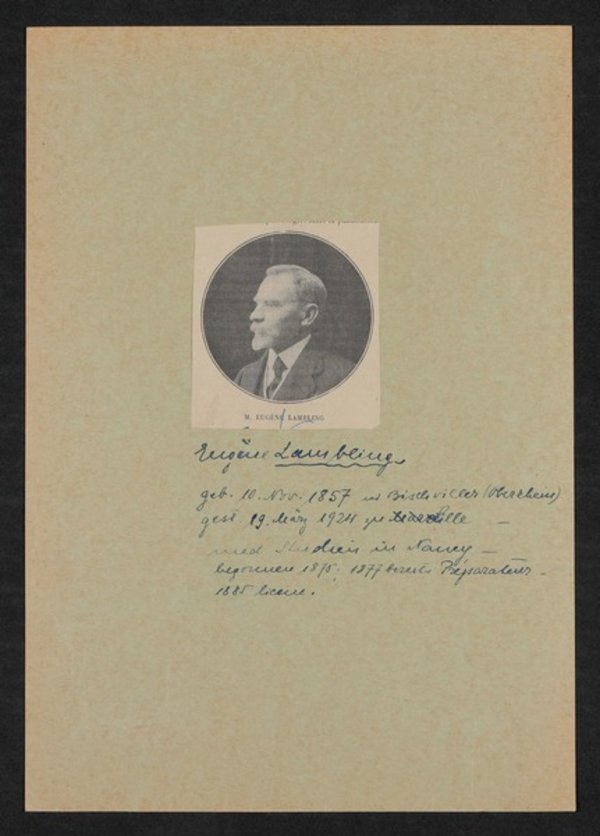 M. EUGÈNE LAMBLING
Eugène Lambling
geb. 10. Nov. 1857 in Bischviller (Oberrhein)
gest 19. März 1924 zu Lille –
med Studien in Nancy –
begonnen 1875; 1877 bereits Préparateur –
1885 licenc.